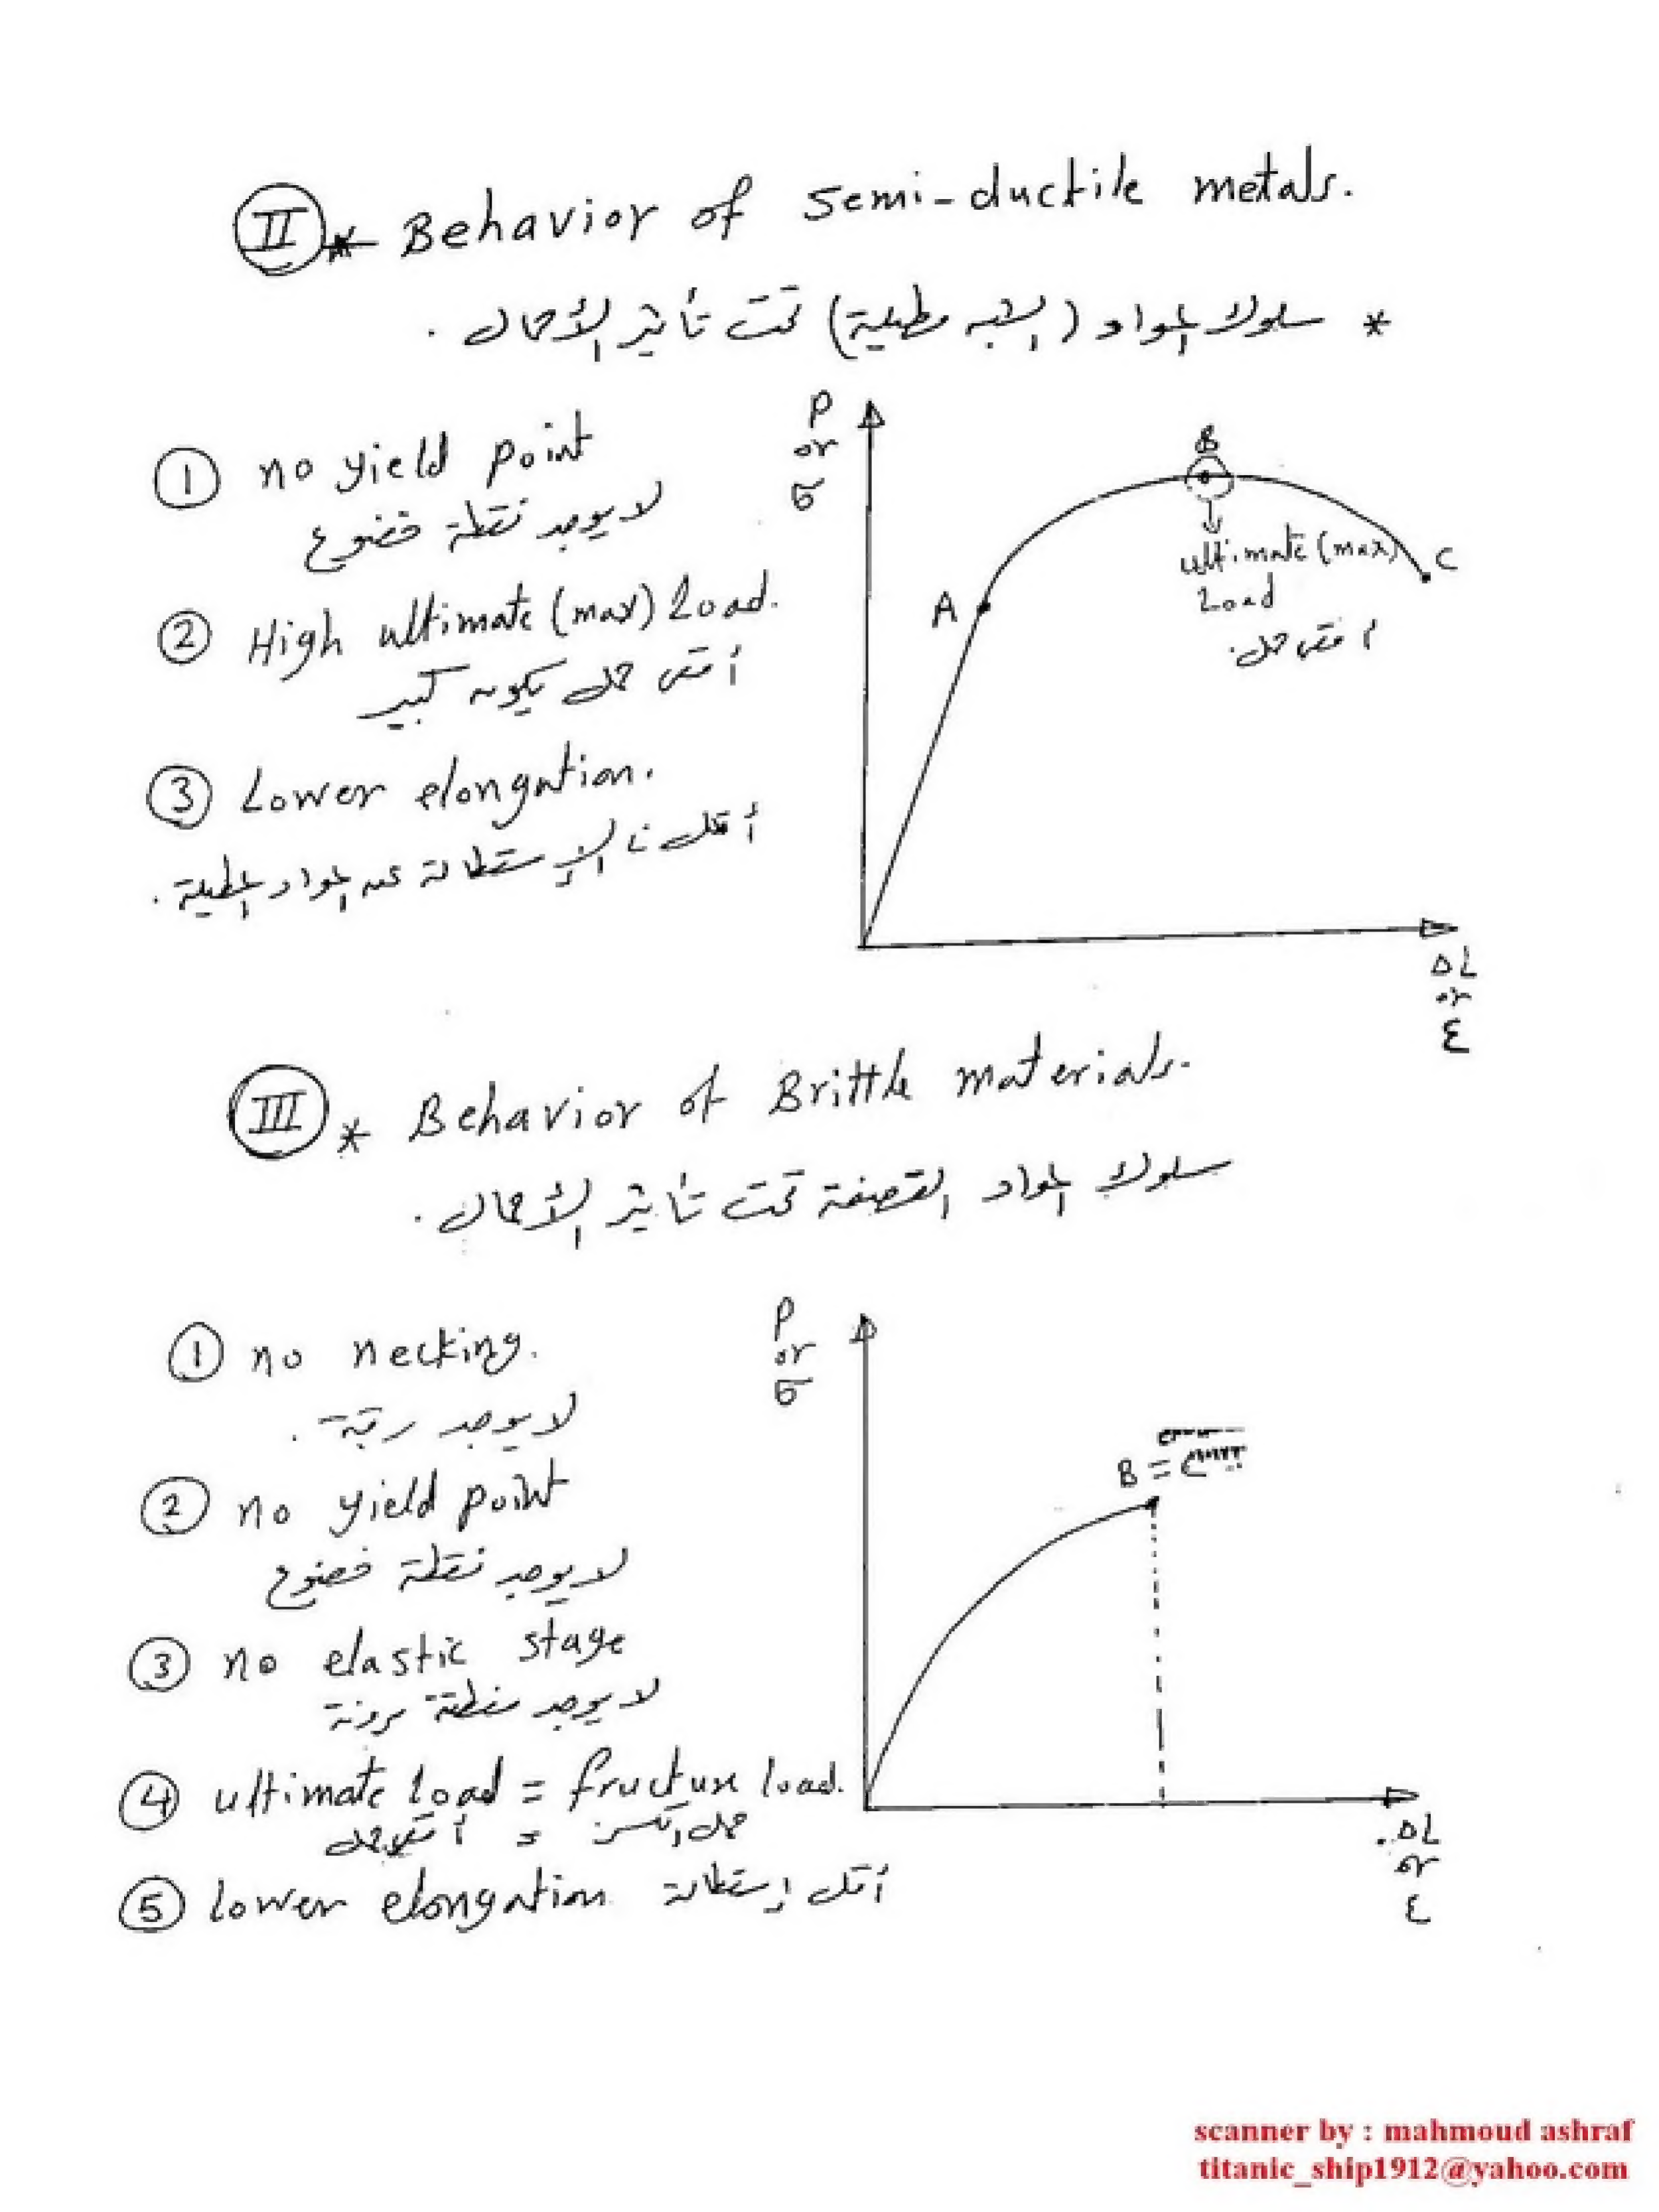 II * Behavior of semi-ductile metals.
* سلوك المواد (الشبه مطيلية) تحت تأثير الأحمال.
① no yield point
لا يوجد نقطة خضوع
② High ultimate (max) Load.
أقصى حمل يكون كبير
③ Lower elongation.
أقل الإستطالة عن المواد المطيلية.
P
or
σ
B
ultimate (max)
Load
أقصى حمل.
A
C
ΔL
or
ε
III * Behavior of Brittle materials.
سلوك المواد القصفة تحت تأثير الأحمال.
① no necking.
لا يوجد رقبة.
② no yield point
لا يوجد نقطة خضوع
③ no elastic stage
لا يوجد منطقة مرونة
④ ultimate load = fructure load.
أقصى حمل = حمل الكسر
⑤ lower elongation أقل إستطالة
P
or
σ
B =
ΔL
or
ε
scanner by : mahmoud ashraf
titanic_ship1912@yahoo.com